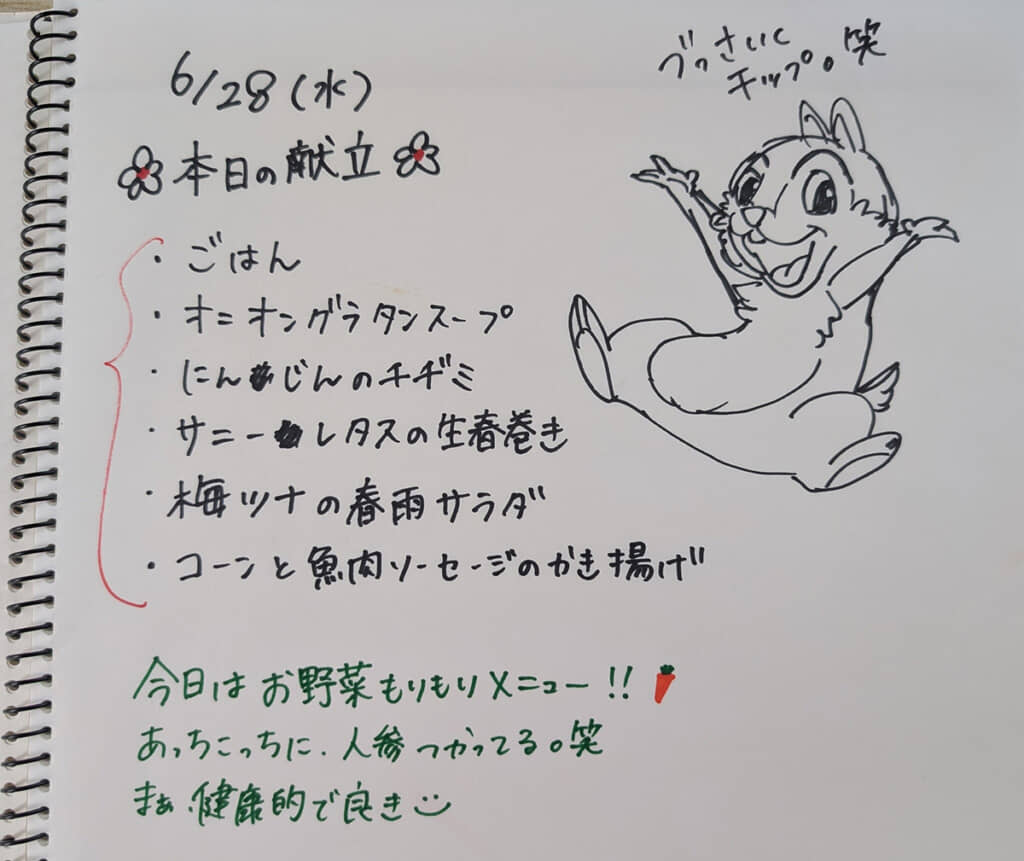 6/28(水)
本日の献立
・ごはん
・オニオングラタンスープ
・にんじんのチヂミ
・サニーレタスの生春巻き
・梅ツナの春雨サラダ
・コーンと魚肉ソーセージのかき揚げ
今日はお野菜もりもりメニュー!!
あっちこっちに、人参つかってる。笑
まぁ、健康的で良き
ぶっさいく
チップ。笑